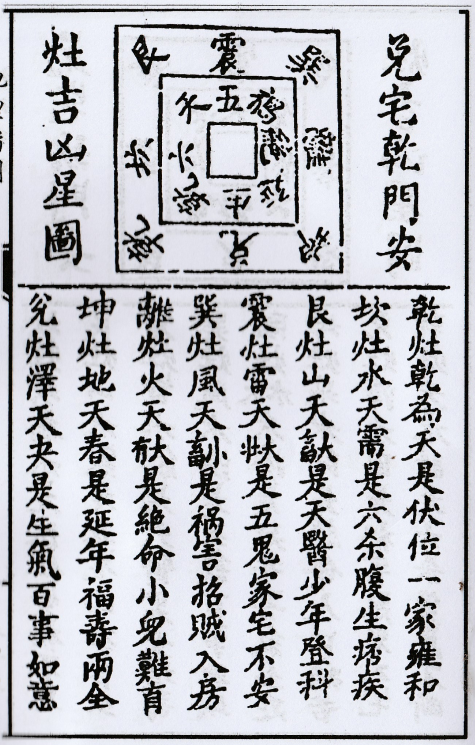 兌宅乾門安
震
巽
離
坤
兌
乾
坎
艮
五
禍
絶
延
生
六
天
灶吉凶星圖
乾灶乾為天是伏位一家雍和
坎灶水天需是六杀腹生痨疾
艮灶山天是天醫少年登科
震灶雷天是五鬼家宅不安
巽灶風天是禍害招賊入房
離灶火天是絶命小兒難育
坤灶地天春是延年福壽兩全
兌灶澤天夬是生氣百事如意